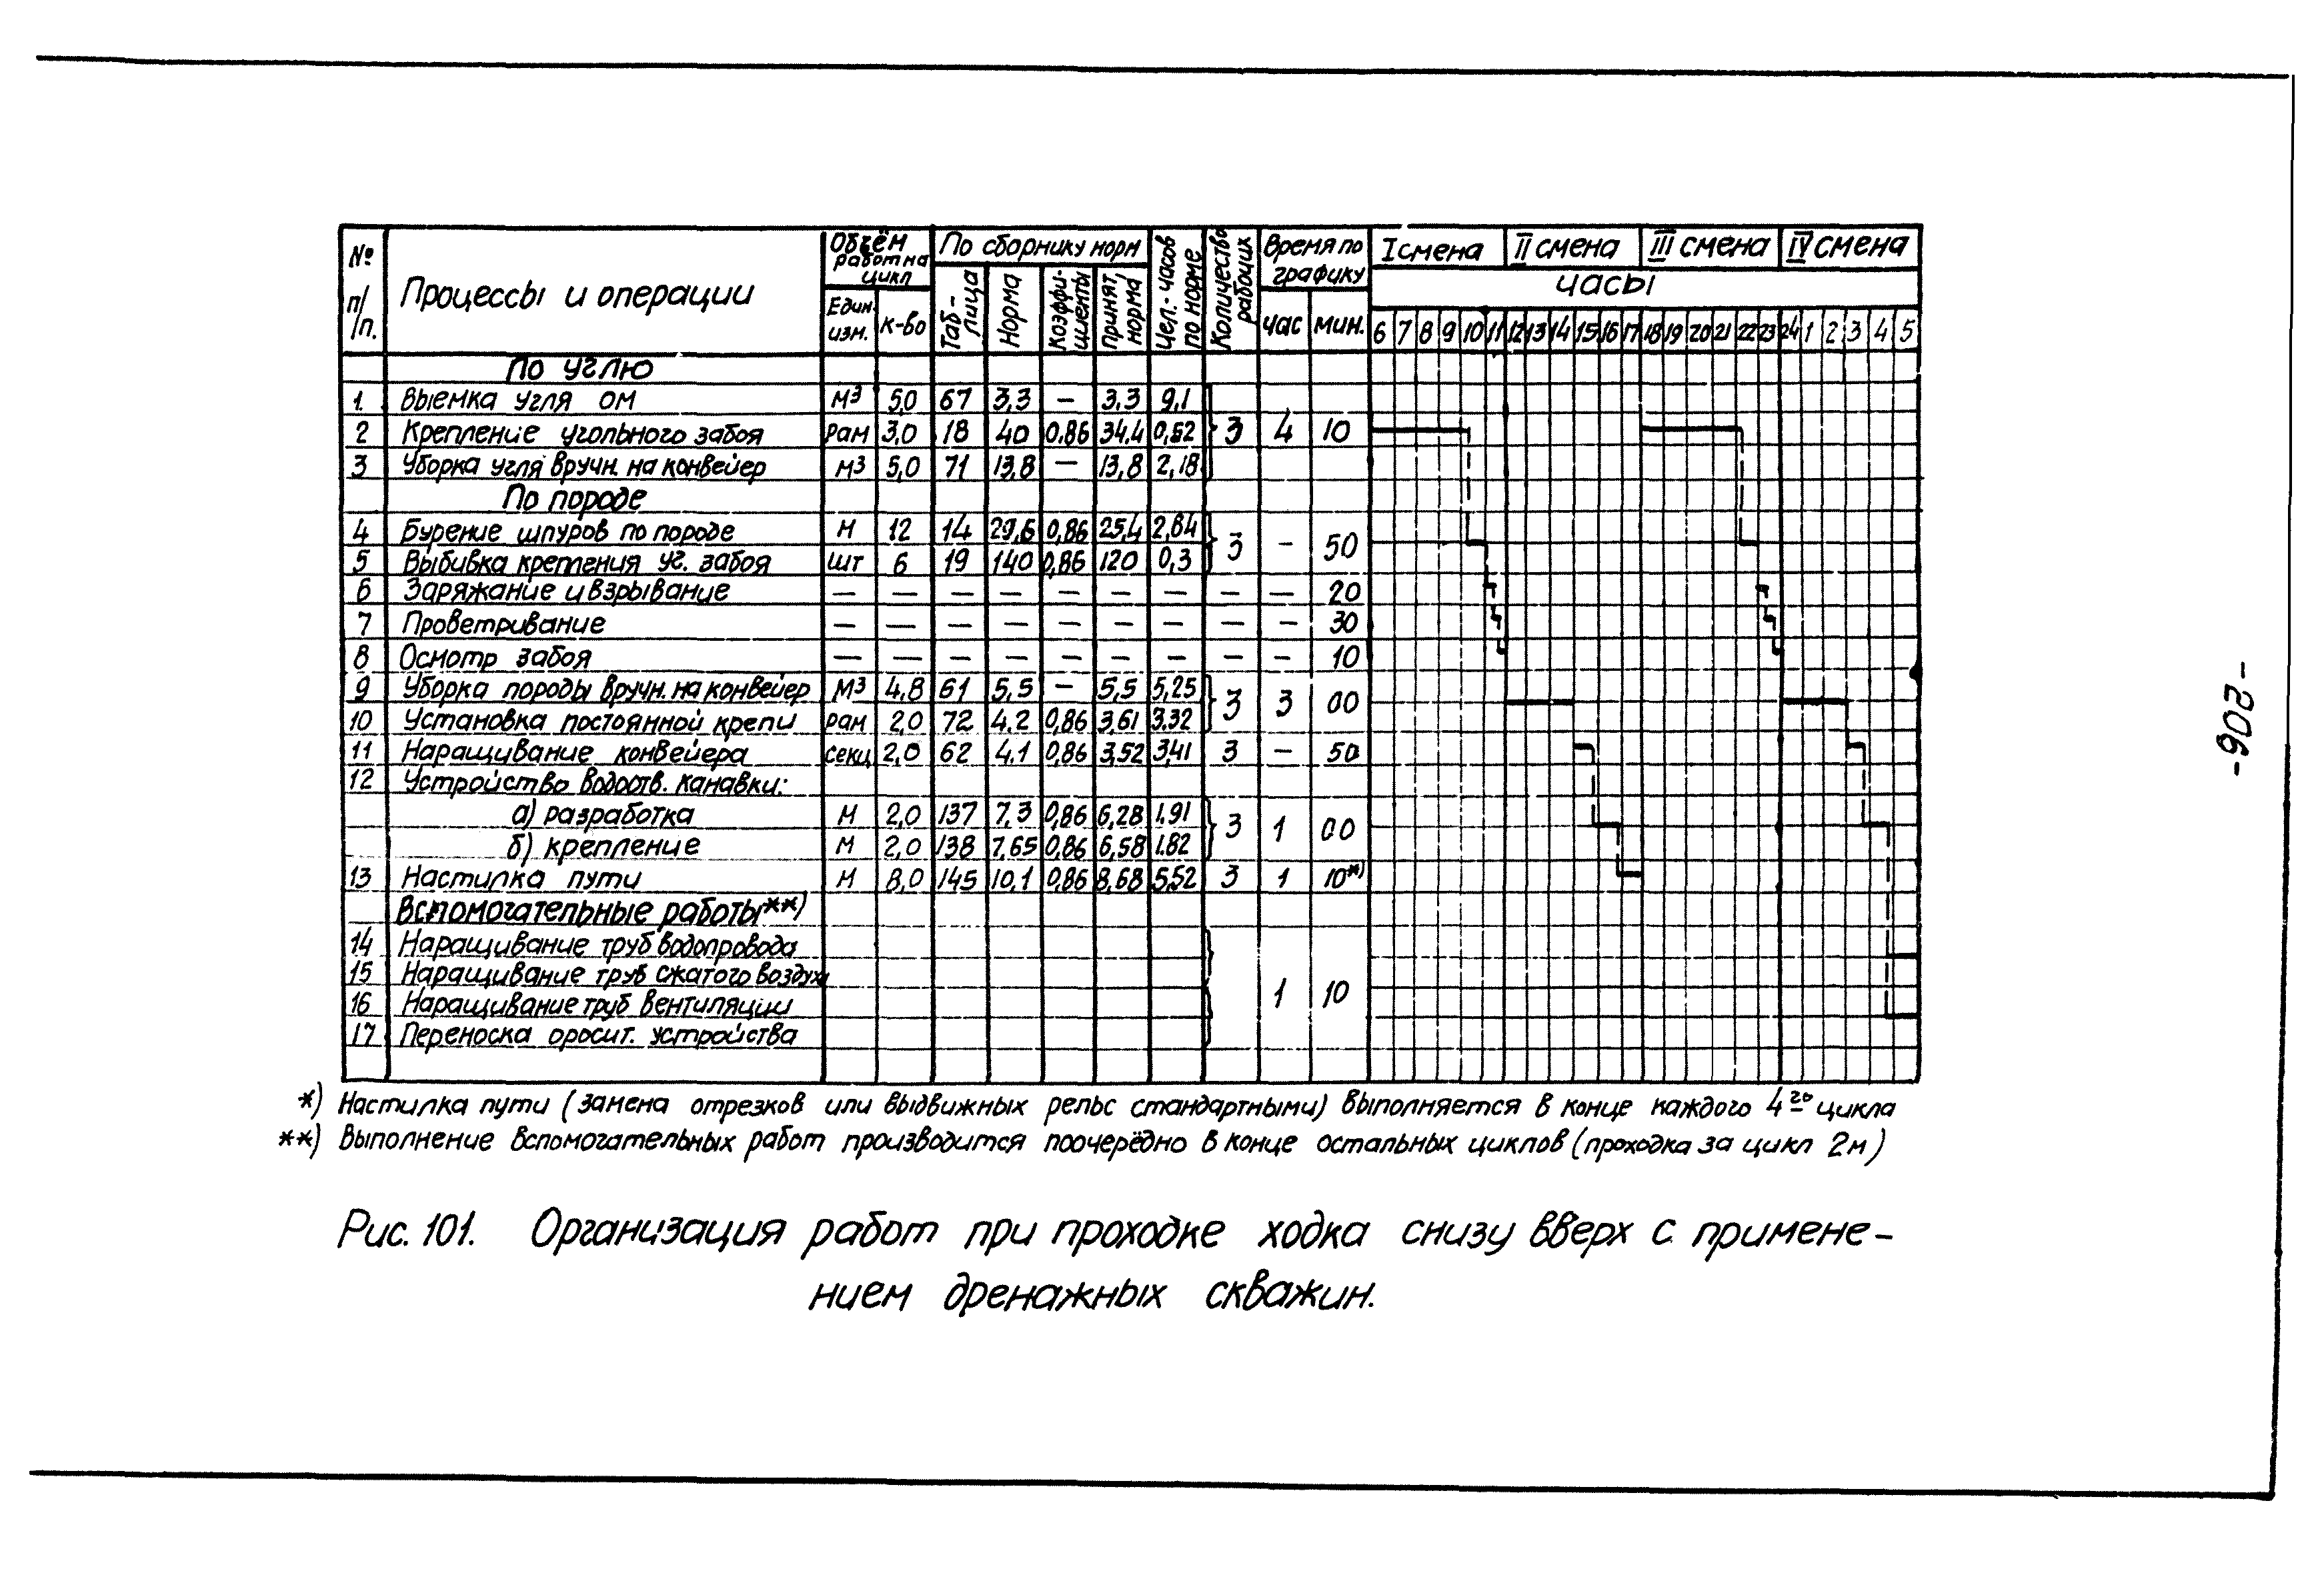 № п/п. Процессы и операции Объём работ на цикл По сборнику норм Чел.-часов по норме Количество рабочих Время по графику I смена II смена III смена IV смена
Един. изм. К-во Таблица Норма Коэффициенты Принят. норма час мин. часы
6 7 8 9 10 11 12 13 14 15 16 17 18 19 20 21 22 23 24 1 2 3 4 5
По углю
1. Выемка угля ОМ м3 5,0 67 3,3 — 3,3 9,1
2 Крепление угольного забоя рам 3,0 18 40 0,86 34,4 0,52 3 4 10
3 Уборка угля вручн. на конвейер м3 5,0 71 13,8 — 13,8 2,18
По породе
4 Бурение шпуров по породе м 12 14 29,6 0,86 25,4 2,84
5 Выбивка крепления уг. забоя шт 6 19 140 0,86 120 0,3 3 — 50
6 Заряжание и взрывание — — — — — — — — — 20
7 Проветривание — — — — — — — — — 30
8 Осмотр забоя — — — — — — — — — 10
9 Уборка породы вручн. на конвейер м3 4,8 61 5,5 — 5,5 5,25 3 3 00
10 Установка постоянной крепи рам 2,0 72 4,2 0,86 3,61 3,32
11 Наращивание конвейера секц 2,0 62 4,1 0,86 3,52 3,41 3 — 50
12 Устройство водоотв. канавки:
а) разработка м 2,0 137 7,3 0,86 6,28 1,91 3 1 00
б) крепление м 2,0 138 7,65 0,86 6,58 1.82
13 Настилка пути м 8,0 145 10,1 0,86 8,68 5,52 3 1 10*)
Вспомогательные работы**)
14 Наращивание труб водопровода
15 Наращивание труб сжатого воздуха
16 Наращивание труб вентиляции 1 10
17 Переноска оросит. устройства
*) Настилка пути (замена отрезков или выдвижных рельс стандартными) выполняется в конце каждого 4го цикла
**) Выполнение вспомогательных работ производится поочерёдно в конце остальных циклов (проходка за цикл 2м)
Рис. 101. Организация работ при проходке ходка снизу вверх с примене-
нием дренажных скважин.
-206-